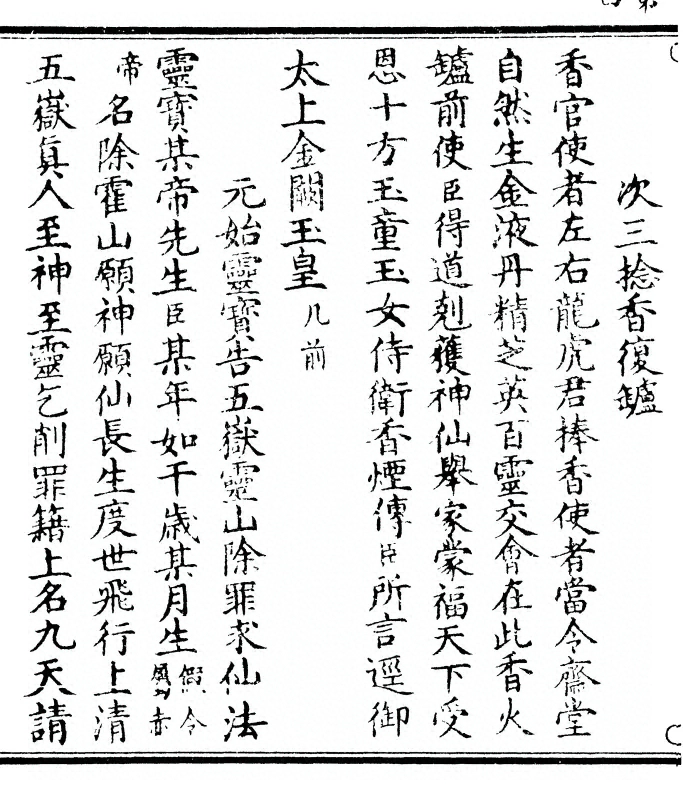 次三捻香復鑪
香官使者左右龍虎君捧香使者當令齋堂
自然生金液丹精芝英百靈交會在此香火
鑪前使臣得道剋獲神仙舉家蒙福天下受
恩十方玉童玉女侍衛香煙傳臣所言逕御
太上金闕玉皇几前
元始靈寶告五嶽靈山除罪求仙法
靈寶某帝先生臣某年如干歲某月生假令赤
帝名除霍山願神願仙長生度世飛行上清
五嶽真人至神至靈乞削罪籍上名九天請